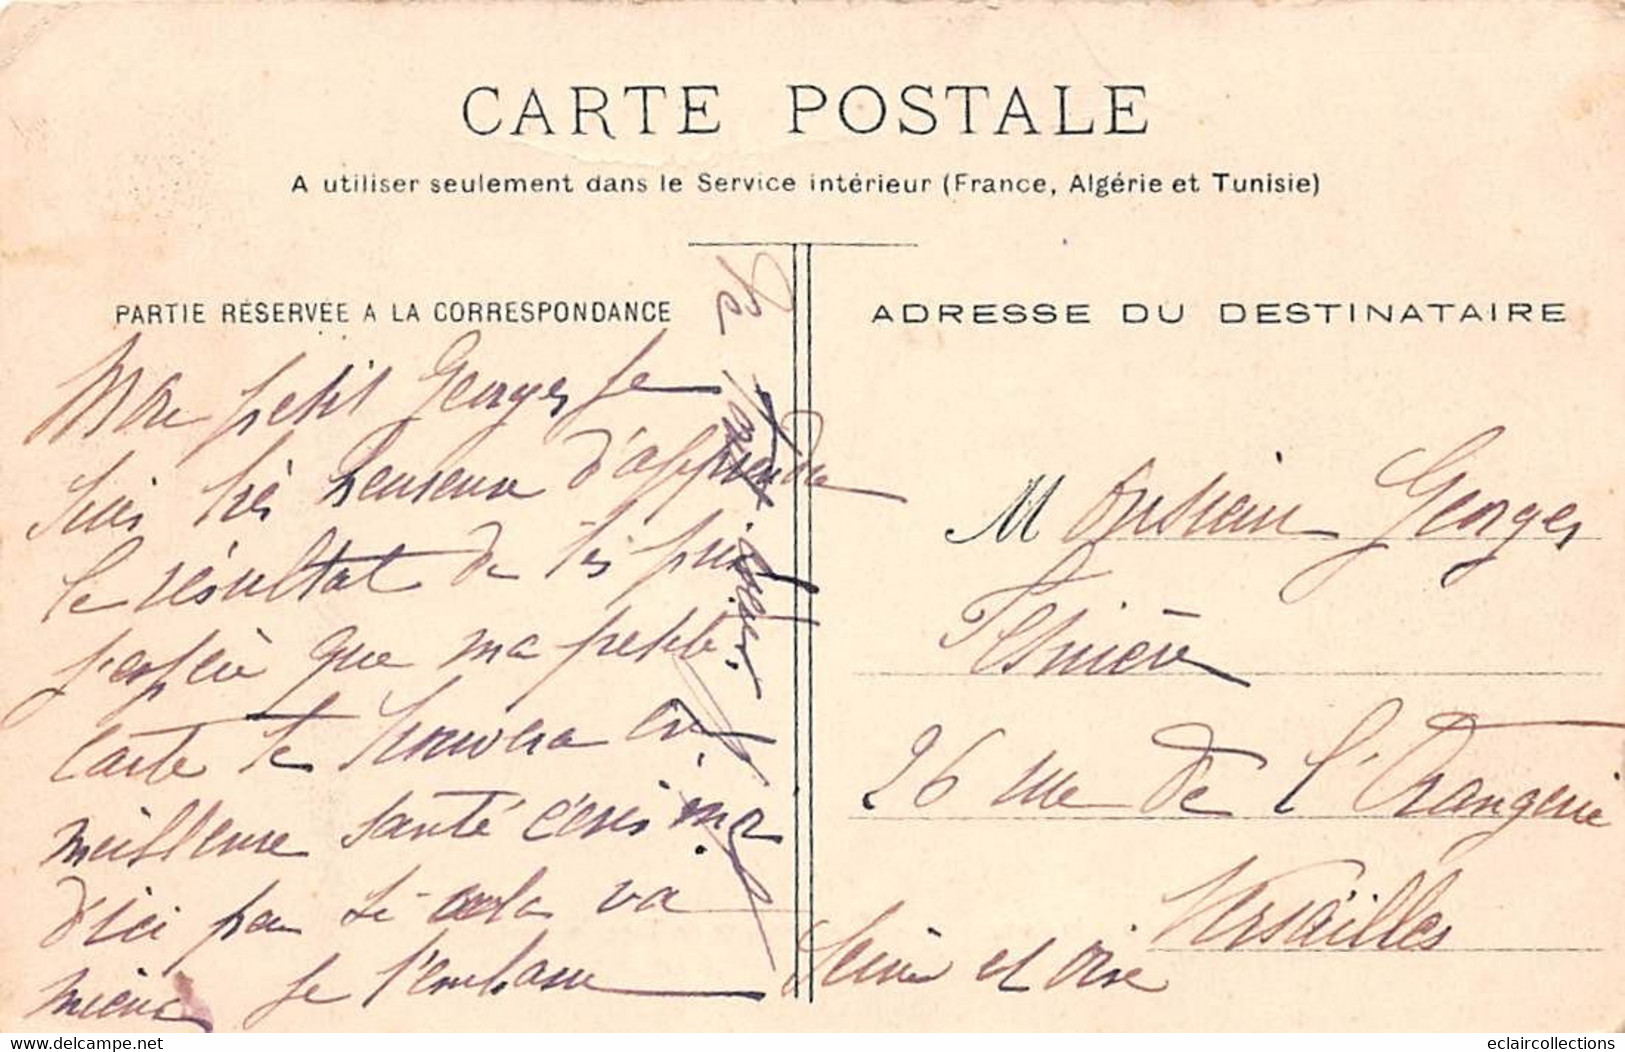 CARTE POSTALE
A utiliser seulement dans le Service intérieur (France, Algérie et Tunisie)
PARTIE RÉSERVÉE A LA CORRESPONDANCE
Mon petit Georges Je
suis très heureux d'apprendre
le résultat de tes prix
j'espère que ma petite
carte te trouvera en
meilleure santé écris moi
d'ici peu si cela va
mieux Je t'embrasse
ADRESSE DU DESTINATAIRE
Monsieur Georges
26 rue de l'Orangerie
Versailles
Seine et Oise
delcampe.net
eclaircollections